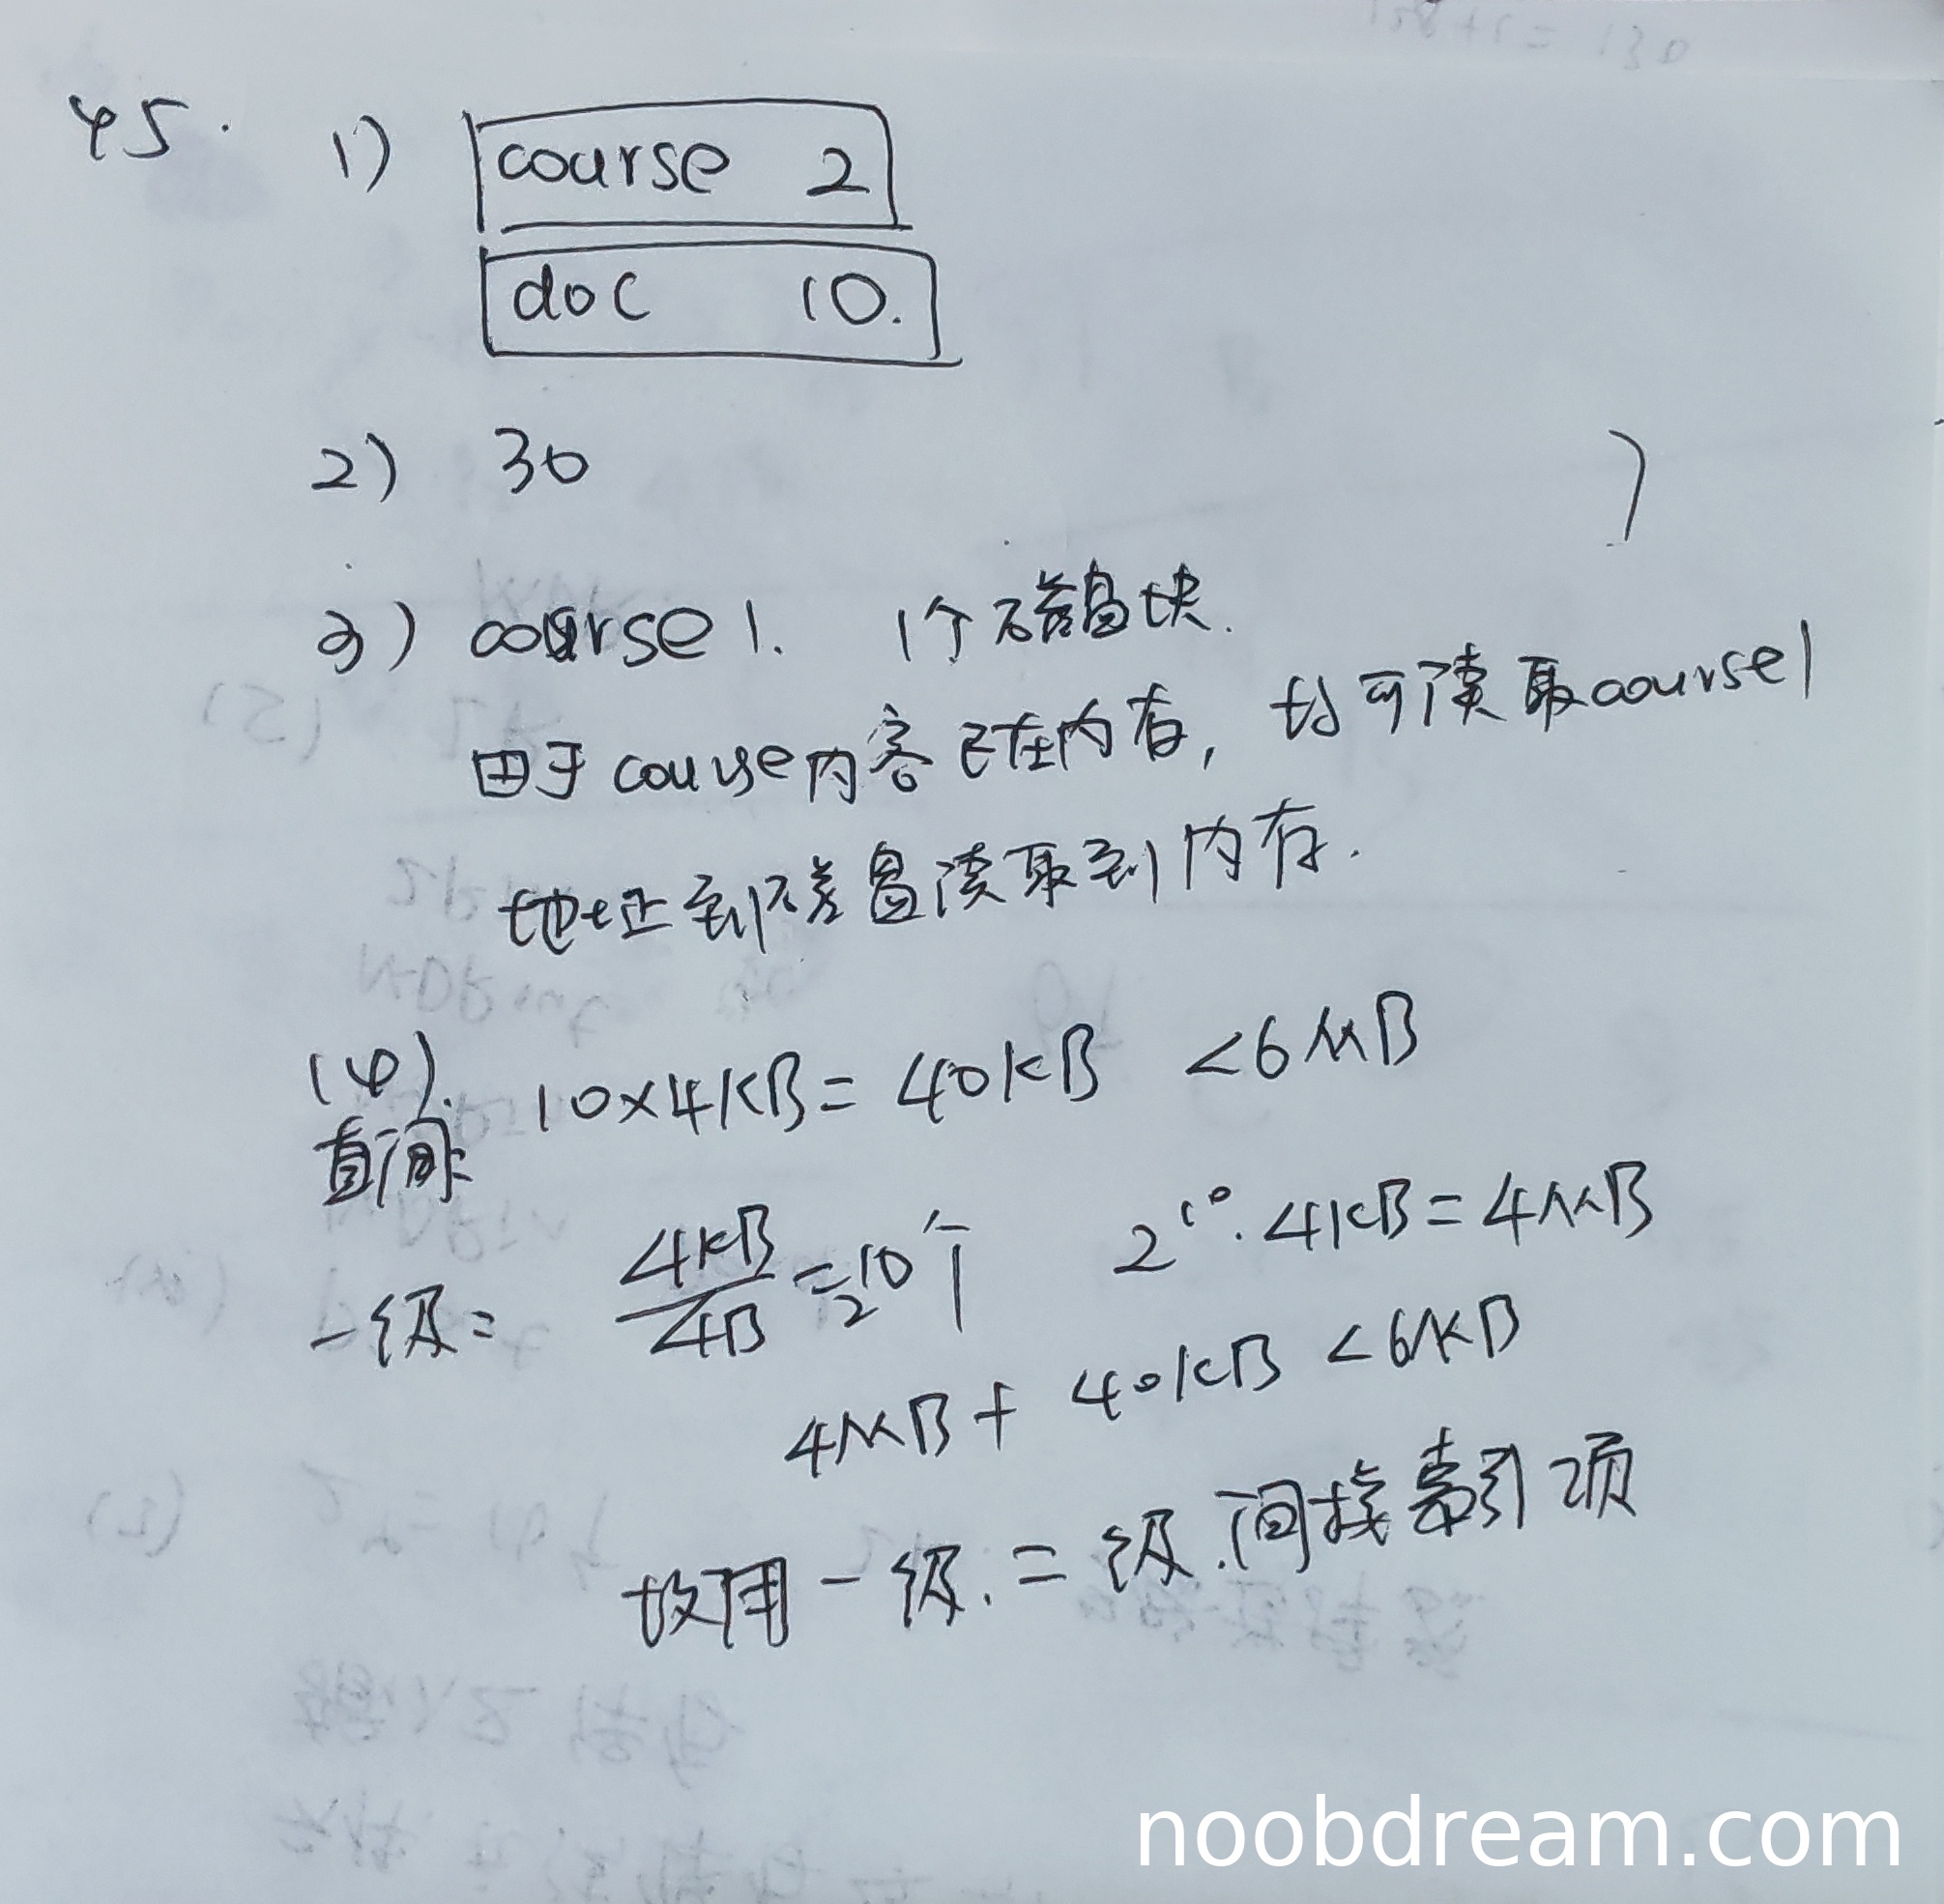 45.
1) course 2
doc 10.
2) 30
3) course1. 1个磁盘块.
由于course内容已在内存, 故可读取course1
地址到磁盘读取到内存.
(4). 10×4KB = 40KB <6MB
直间:
一级: 4KB/4B = 2^10个 2^10·4KB = 4MB
4MB + 40KB <6KB
故用一级.二级.间接索引项
noobdream.com